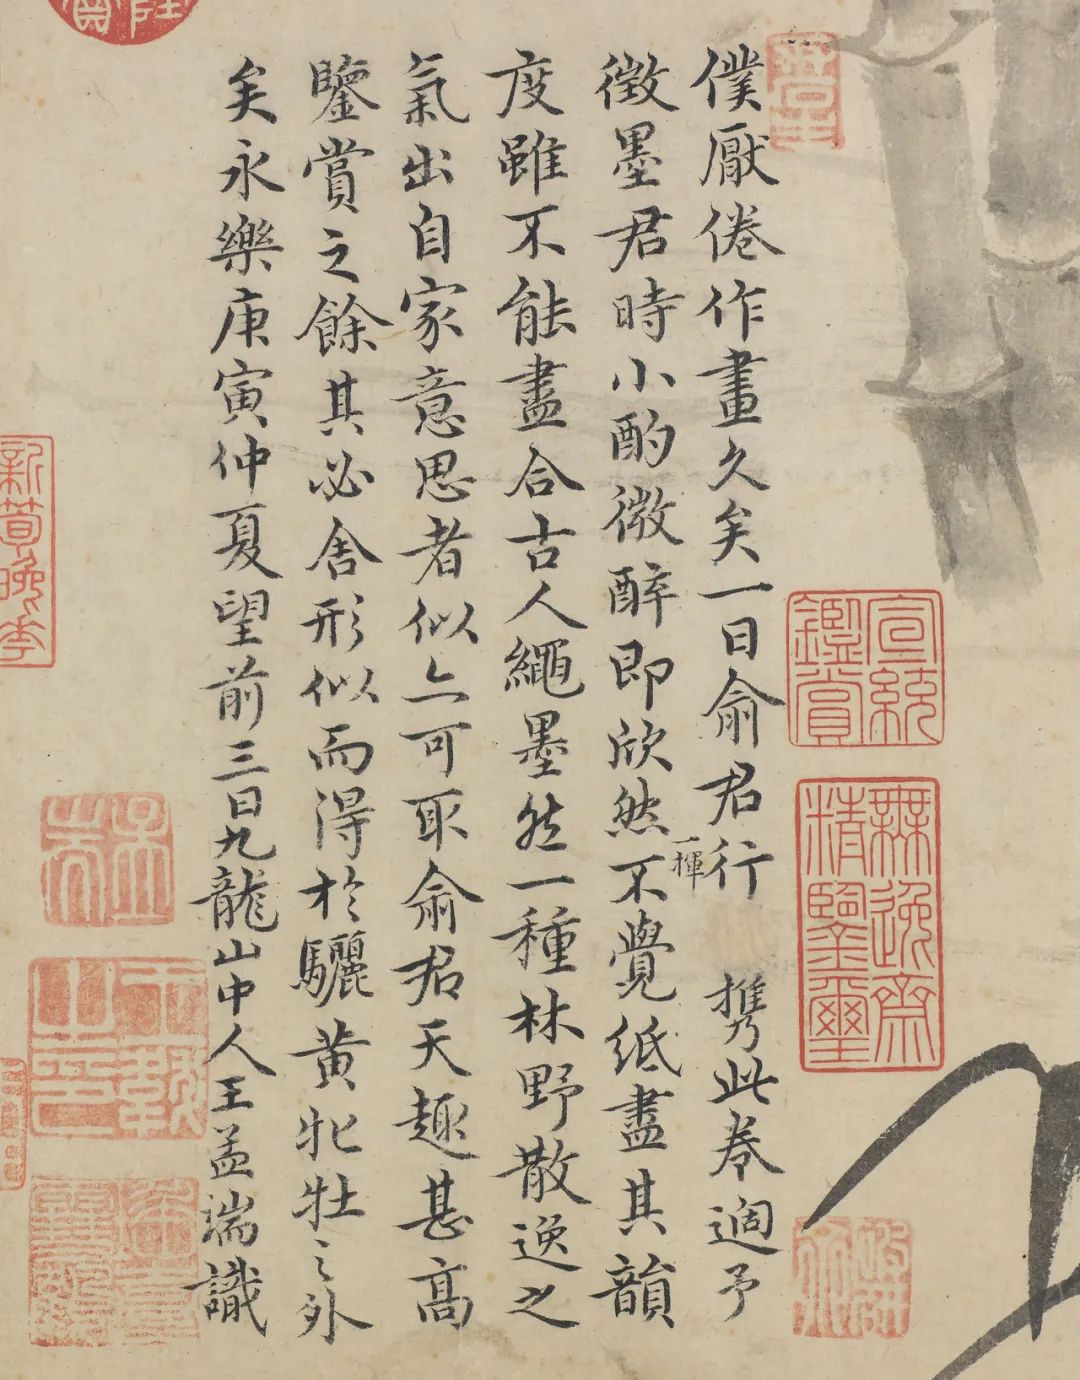 僕厭倦作畫久矣一日俞君行 携此卷過予
徵墨君時小酌微醉即欣然一揮不覺紙盡其韻
度雖不能盡合古人繩墨然一種林野散逸之
氣出自家意思者似亦可取俞君天趣甚高
鑒賞之餘其必舍形似而得於驪黃牝牡之外
矣永樂庚寅仲夏望前三日九龍山中人王孟端識
宣統鑑賞
無逸齋精鑒璽
孟端